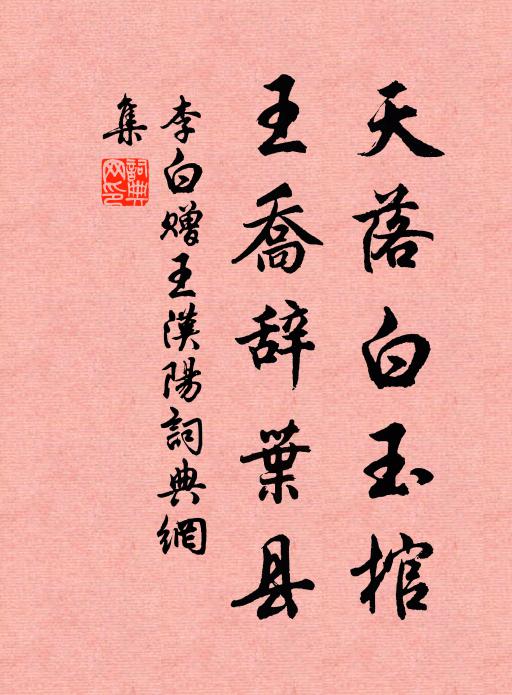 天落白玉棺
王喬辞葉县
李白贈王漢陽詞典網
集
詞典
网印